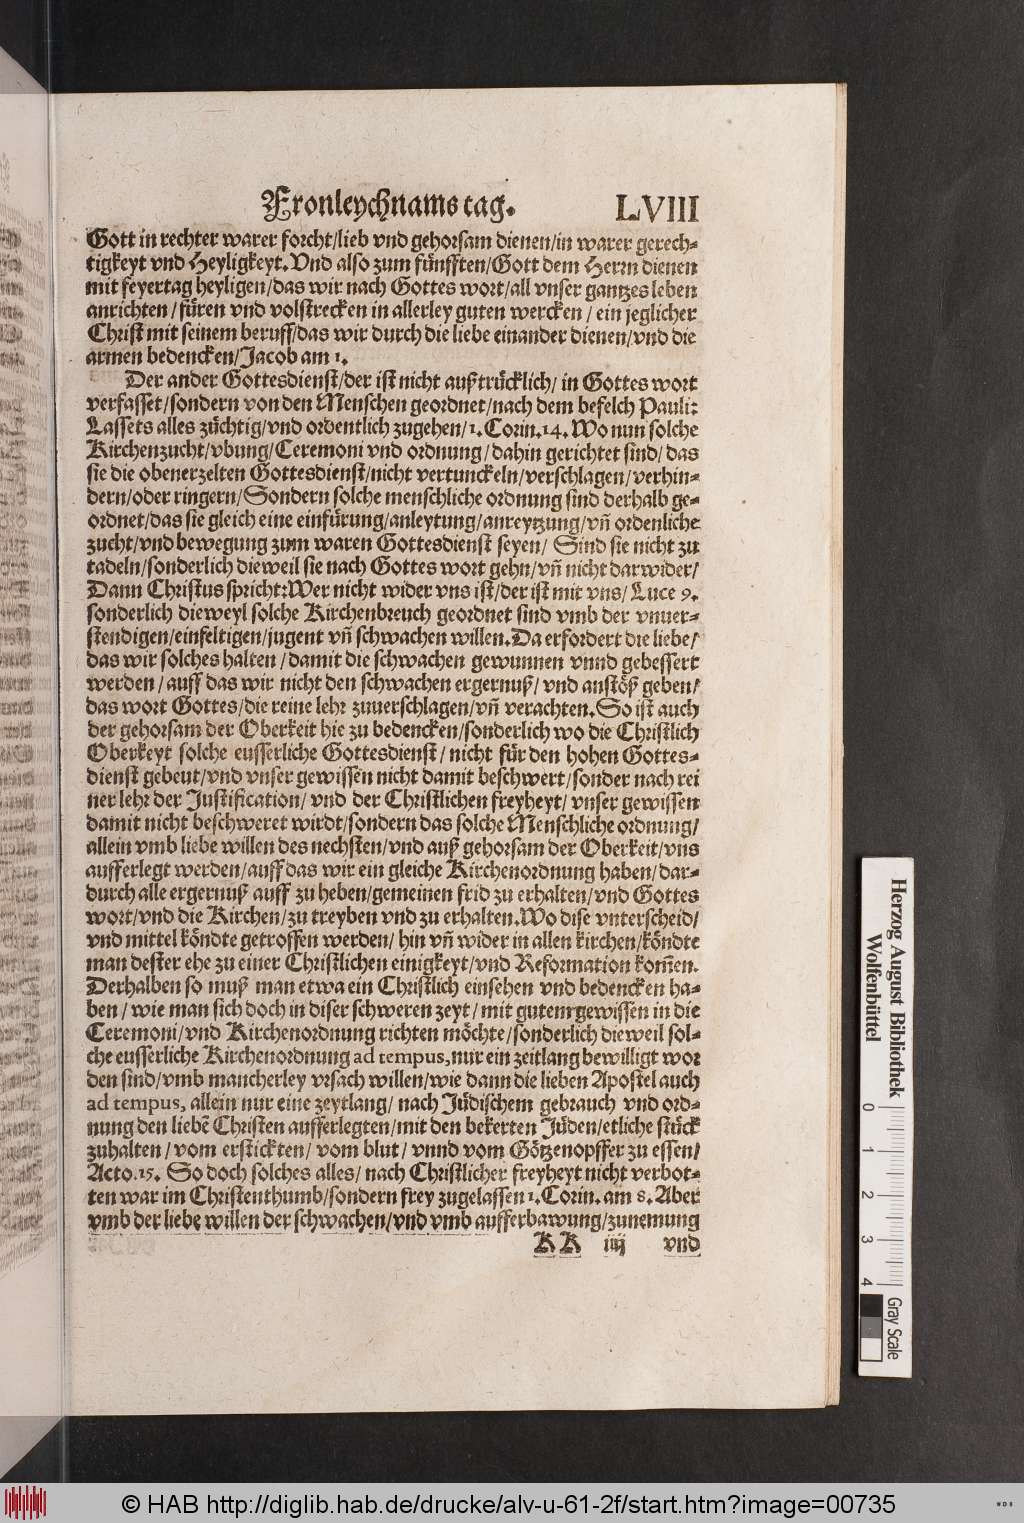 Fronleychnams tag. LVIII
Gott in rechter warer forcht/lieb vnd gehorsam dienen/in warer gerech-
tigkeyt vnd Heyligkeyt. Vnd also zum fünfften/Gott dem Herrn dienen
mit feyertag heyligen/das wir nach Gottes wort/all vnser gantzes leben
anrichten/füren vnd volstrecken in allerley guten wercken/ein jeglicher
Christ mit seinem beruff/das wir durch die liebe einander dienen/vnd die
armen bedencken/Jacob am 1.
Der ander Gottesdienst/der ist nicht außtrücklich/in Gottes wort
verfasset/sondern von den Menschen geordnet/nach dem befelch Pauli:
Lassets alles züchtig/vnd ordentlich zugehen/1. Corin. 14. Wo nun solche
Kirchenzucht/vbung/Ceremoni vnd ordnung/dahin gerichtet sind/das
sie die obenerzelten Gottesdienst/nicht vertunckeln/verschlagen/verhin-
dern/oder ringern/Sondern solche menschliche ordnung sind derhalb ge-
ordnet/das sie gleich eine einfürung/anleytung/anreytzung/vñ ordenliche
zucht/vnd bewegung zum waren Gottesdienst seyen/Sind sie nicht zu
tadeln/sonderlich dieweil sie nach Gottes wort gehn/vñ nicht darwider/
Dann Christus spricht: Wer nicht wider vns ist/der ist mit vns/Luce 9.
sonderlich dieweyl solche Kirchenbreuch geordnet sind vmb der vnuer-
stendigen/einfeltigen/jugent vñ schwachen willen. Da erfordert die liebe/
das wir solches halten/damit die schwachen gewunnen vnnd gebessert
werden/auff das wir nicht den schwachen ergernuß/vnd anstöß geben/
das wort Gottes/die reine lehr zuuerschlagen/vñ verachten. So ist auch
der gehorsam der Oberkeit hie zu bedencken/sonderlich wo die Christlich
Oberkeyt solche eusserliche Gottesdienst/nicht für den hohen Gottes-
dienst gebeut/vnd vnser gewissen nicht damit beschwert/sonder nach rei
ner lehr der Justification/vnd der Christlichen freyheyt/vnser gewissen
damit nicht beschweret wirdt/sondern das solche Menschliche ordnung/
allein vmb liebe willen des nechsten/vnd auß gehorsam der Oberkeit/vns
aufferlegt werden/auff das wir ein gleiche Kirchenordnung haben/dar-
durch alle ergernuß auff zu heben/gemeinen frid zu erhalten/vnd Gottes
wort/vnd die Kirchen/zu treyben vnd zu erhalten. Wo dise vnterscheid/
vnd mittel köndte getroffen werden/hin vñ wider in allen kirchen/köndte
man dester ehe zu einer Christlichen einigkeyt/vnd Reformation kom̃en.
Derhalben so muß man etwa ein Christlich einsehen vnd bedencken ha-
ben/wie man sich doch in diser schweren zeyt/mit gutem gewissen in die
Ceremoni/vnd Kirchenordnung richten möchte/sonderlich dieweil sol-
che eusserliche Kirchenordnung ad tempus, nur ein zeitlang bewilligt wor
den sind/vmb mancherley vrsach willen/wie dann die lieben Apostel auch
ad tempus, allein nur eine zeytlang/nach Jüdischem gebrauch vnd ord-
nung den liebẽ Christen aufferlegten/mit den bekerten Jüden/etliche stück
zuhalten/vom erstickten/vom blut/vnnd vom Götzenopffer zu essen/
Acto. 15. So doch solches alles/nach Christlicher freyheyt nicht verbot-
ten war im Christenthumb/sondern frey zugelassen 1. Corin. am 8. Aber
vmb der liebe willen der schwachen/vnd vmb aufferbawung/zunemung
KK iiij vnd
Herzog August Bibliothek
Wolfenbüttel
0 1 2 3 4
Gray Scale
© HAB http://diglib.hab.de/drucke/alv-u-61-2f/start.htm?image=00735